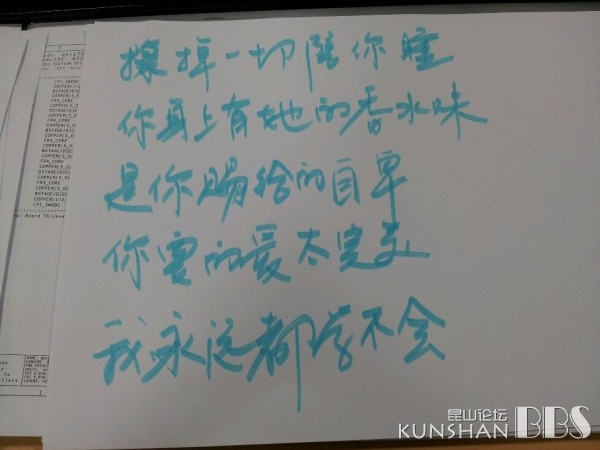 擦掉一切陪你睡
你身上有她的香水味
是你赐给的自卑
你要的爱太完美
我永远都学不会
昆山论坛
KUNSHAN BBS